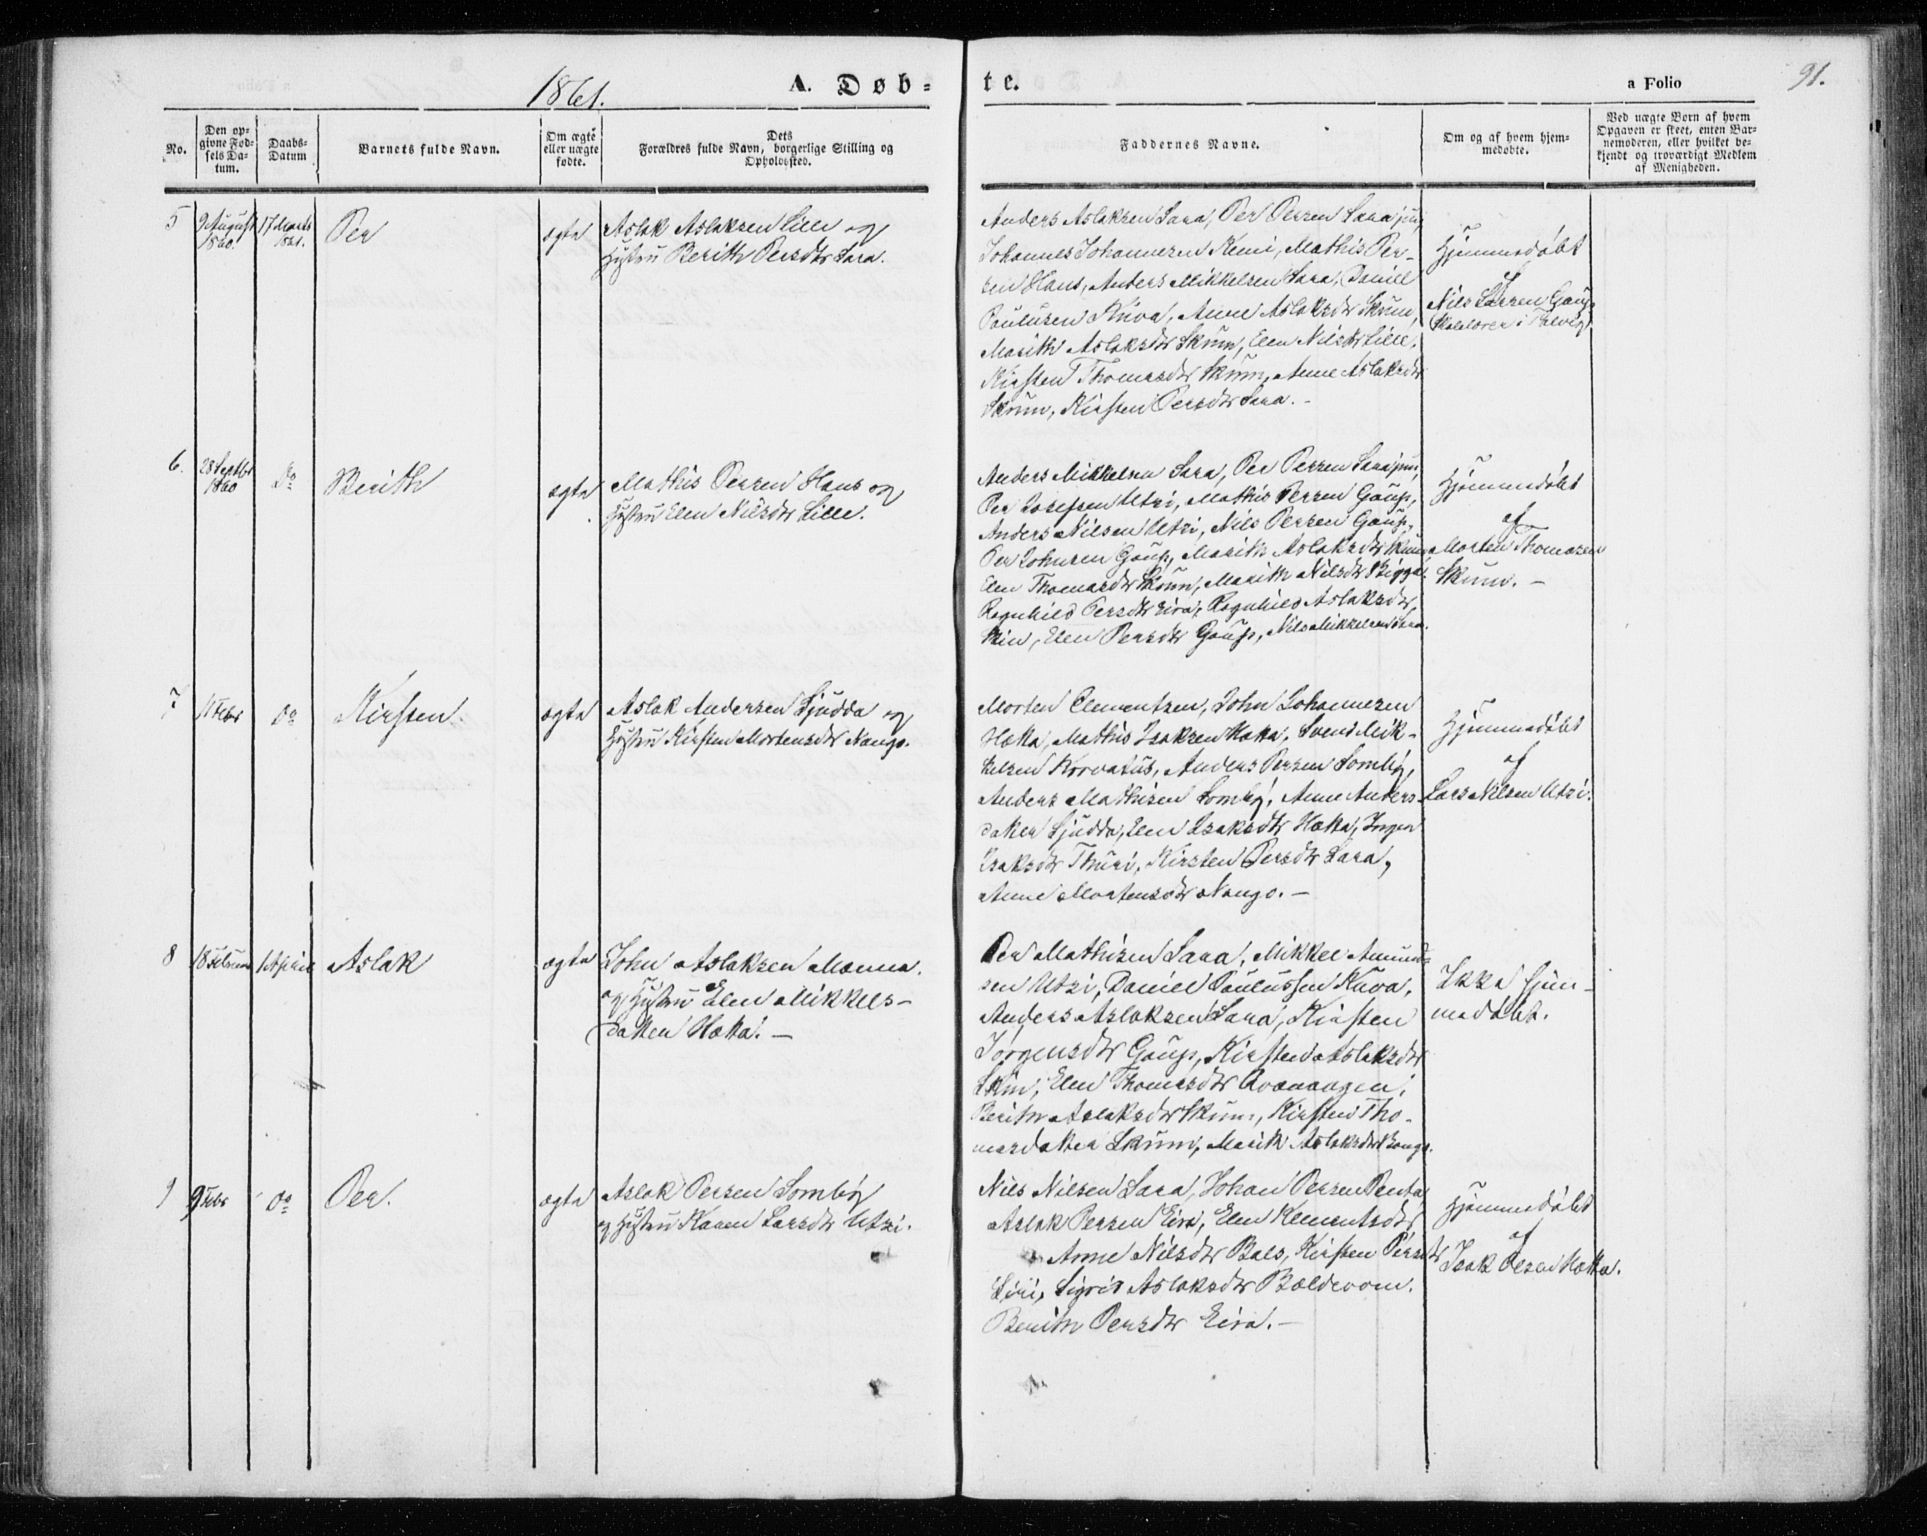 1861.
A. Døb-
te.
a Folio
91.
No.
Den op-
givne Fød-
sels Da-
tum.
Daabs-
Datum
Barnets fulde Navn.
Om ægte
eller uægte
fødte.
Dets
Forældres fulde Navn, borgerlige Stilling og
Opholdssted.
Faddernes Navne.
Om og af hvem hjem-
medøbte.
Ved uægte Børn af hvem
Opgaven er skeet, enten Bar-
nemoderen, eller hvilket be-
kjendt og troværdigt Medlem
af Menigheden.
5
9 August
1860.
17 Marts
1861.
Per
ægte
Aslak Aslaksen Lille og
Hustru Berith Persdtr Sara.
Anders Aslaksen Sara, Per Persen Sara jun,
Johannes Johannesen Kemi, Mathis Per-
sen Hans, Anders Mikkelsen Sara, Daniel
Paulusen Kuva, Anne Aslaksdtr Skum,
Marith Aslaksdtr Skum, Elen Nilsdtr Lille,
Kirsten Thomasdtr Skum, Anne Aslaksdtr
Skum, Kirsten Persdtr Sara. -
Hjemmedøbt
af
Nils Larsen Gaup
Skolelærer i Talvig
6.
28 Septbr
1860
Do
Berith
ægte
Mathis Persen Hans og
Hustru Elen Nilsdtr Lille.
Anders Mikkelsen Sara, Per Persen Sara jun,
Per Josefsen Utzi, Mathis Persen Gaup,
Anders Nilsen Utzi, Nils Persen Gaup,
Per Johnsen Gaup, Marith Aslaksdtr Skum
Elen Thomasdtr Skum, Marith Nilsdtr Bigga
Ragnhild Persdtr Eira, Ragnhild Aslaksdtr
Skin, Elen Persdtr Gaup, Nils Mikkelsen Sara.
Hjemmedøbt
af
Morten Thomasen
Skum. -
7
11 Febr
Do
Kirsten
ægte
Aslak Andersen Sjudda og
Hustru Kirsten Mortensdtr Nango.
Morten Clementsen, John Johannesen
Hætta, Mathis Isaksen Hætta, Svend Mik-
kelsen Korvatus, Anders Persen Somby,
Anders Mathisen Somby, Anne Anders-
datter Sjudda, Elen Isaksdtr Hætta, Inger
Isaksdtr Thuri, Kirsten Persdtr Sara,
Anne Mortensdtr Nango. -
Hjemmedøbt
af
Lars Nilsen Utzi.
8
18 Februar
1 April
Aslak
ægte
John Aslaksen Mænna.
og Hustru Elen Mikkels-
datter Hætta. -
Per Mathisen Sara, Mikkel Amund-
sen Utzi, Daniel Paulussen Kuva,
Anders Aslaksen Sara, Kirsten
Jørgensdtr Gaup, Kirsten Aslaksdtr
Skin, Elen Thomasdtr Qvænangen,
Berith Aslaksdtr Skum, Kirsten Tho-
masdatter Skum, Marith Aslaksdtr Bongo.
Ikke hjem-
medøbt.
9
9 Febr
Do
Per.
ægte
Aslak Persen Somby
og Hustru Karen Larsdtr Utzi.
Nils Nilsen Sara, Johan Persen Penta
Aslak Persen Eira, Elen Klementsdtr
Anne Nilsdtr Bals, Kirsten Persdtr
Siri, Sigrid Aslaksdtr Bældevom.
Berith Persdtr Eira. -
Hjemmedøbt
af
Isak Olsen Hætta.